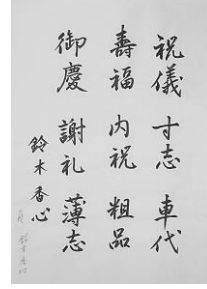 祝儀 寸志 車代
壽福 内祝 粗品
御慶 謝礼 薄志
鈴木香心